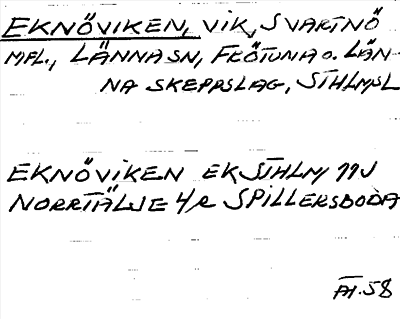 EKNÖVIKEN, VIK, SVARTNÖ
MPL., LÄNNA SN, FRÖTUNA O. LÄN-
NA SKEPPSLAG, STHLMSL
EKNÖVIKEN EK STHLM 11J
NORRTÄLJE 4/R SPILLERSBODA
.58